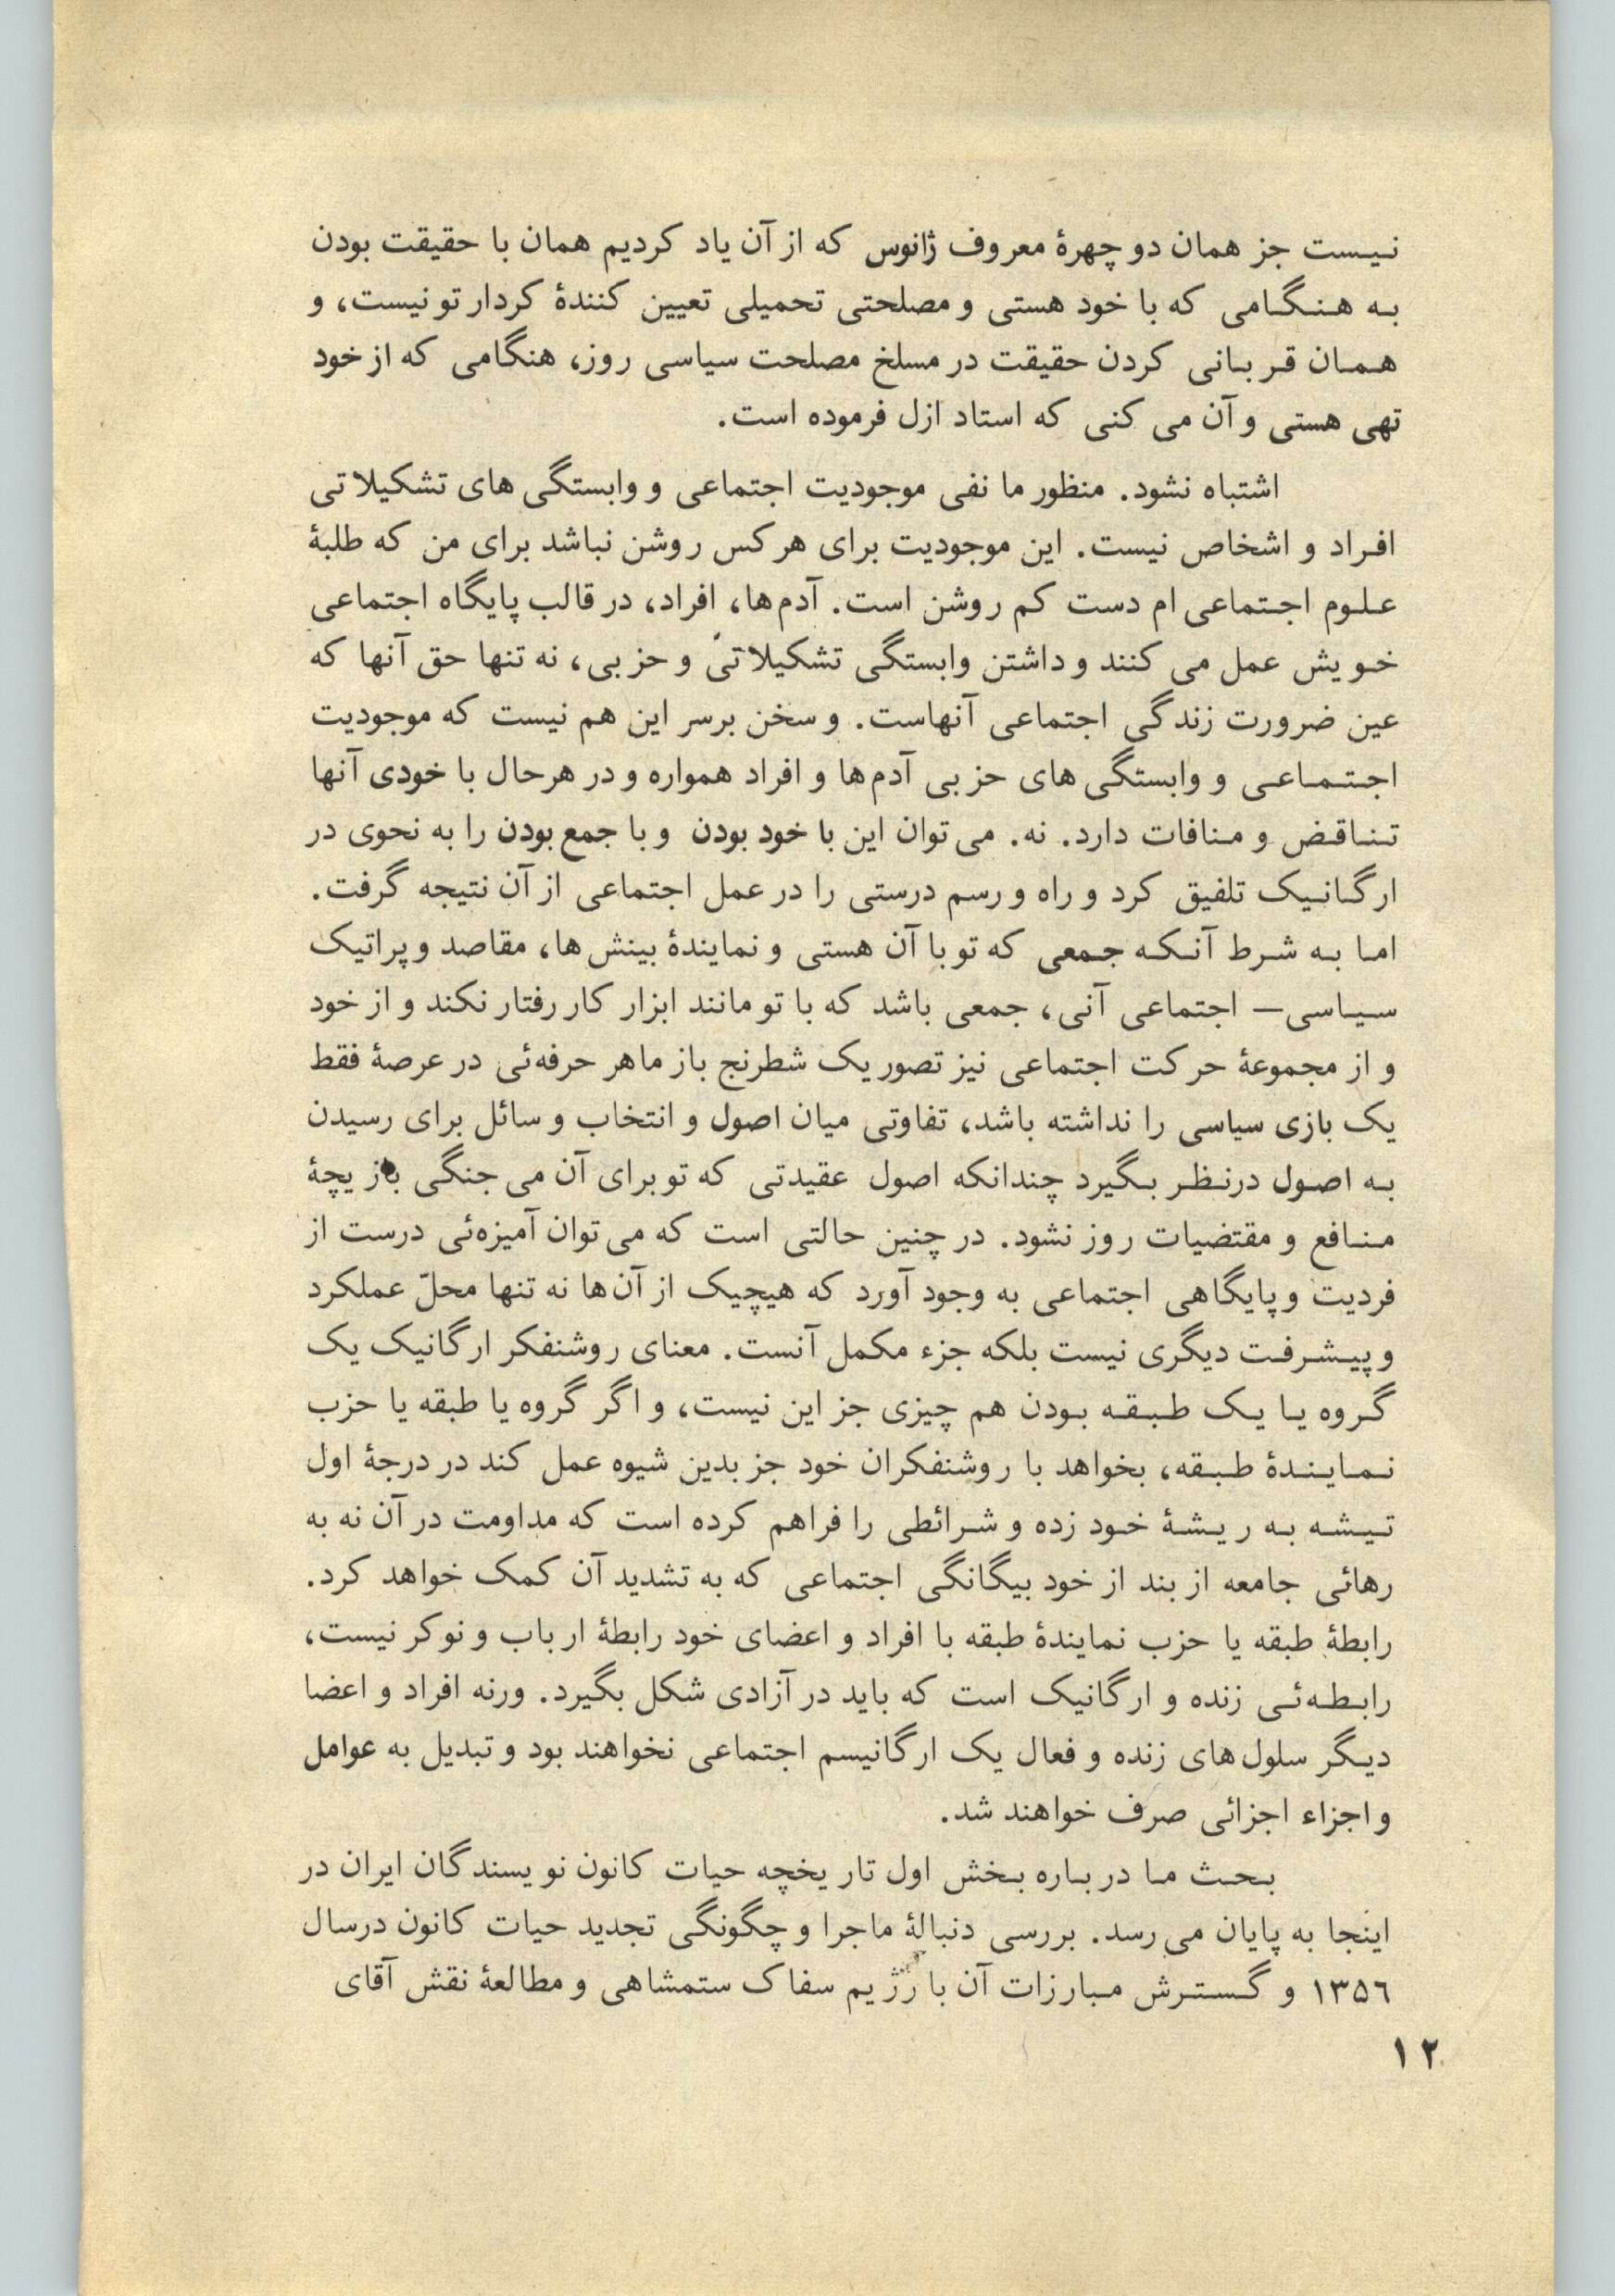 نیست جز همان دو چهرهٔ معروف ژانوس که از آن یاد کردیم همان با حقیقت بودن
به هنگامی که با خود هستی و مصلحتی تحمیلی تعیین کنندهٔ کردار تو نیست، و
همان قربانی کردن حقیقت در مسلخ مصلحت سیاسی روز، هنگامی که از خود
تهی هستی و آن می کنی که استاد ازل فرموده است.
اشتباه نشود. منظور ما نفی موجودیت اجتماعی و وابستگی های تشکیلاتی
افراد و اشخاص نیست. این موجودیت برای هر کس روشن نباشد برای من که طلبهٔ
علوم اجتماعی ام دست کم روشن است. آدم ها، افراد، در قالب پایگاه اجتماعی
خویش عمل می کنند و داشتن وابستگی تشکیلاتی و حزبی، نه تنها حق آنها که
عین ضرورت زندگی اجتماعی آنهاست. و سخن بر سر این هم نیست که موجودیت
اجتماعی و وابستگی های حزبی آدم ها و افراد همواره و در هرحال با خودی آنها
تناقض و منافات دارد. نه. می توان این با خود بودن و با جمع بودن را به نحوی در
ارگانیک تلفیق کرد و راه و رسم درستی را در عمل اجتماعی از آن نتیجه گرفت.
اما به شرط آنکه جمعی که تو با آن هستی و نمایندهٔ بینش ها، مقاصد و پراتیک
سیاسی— اجتماعی آنی، جمعی باشد که با تو مانند ابزار کار رفتار نکند و از خود
و از مجموعهٔ حرکت اجتماعی نیز تصور یک شطرنج باز ماهر حرفه‌ئی در عرصهٔ فقط
یک بازی سیاسی را نداشته باشد، تفاوتی میان اصول و انتخاب وسائل برای رسیدن
به اصول درنظر بگیرد چندانکه اصول عقیدتی که تو برای آن می جنگی بازیچهٔ
منافع و مقتضیات روز نشود. در چنین حالتی است که می توان آمیزه‌ئی درست از
فردیت و پایگاهی اجتماعی به وجود آورد که هیچیک از آن ها نه تنها محلّ عملکرد
و پیشرفت دیگری نیست بلکه جزء مکمل آنست. معنای روشنفکر ارگانیک یک
گروه یا یک طبقه بودن هم چیزی جز این نیست، و اگر گروه یا طبقه یا حزب
نمایندهٔ طبقه، بخواهد با روشنفکران خود جز بدین شیوه عمل کند در درجهٔ اول
تیشه به ریشهٔ خود زده و شرائطی را فراهم کرده است که مداومت در آن نه به
رهائی جامعه از بند از خود بیگانگی اجتماعی که به تشدید آن کمک خواهد کرد.
رابطهٔ طبقه یا حزب نمایندهٔ طبقه با افراد و اعضای خود رابطهٔ ارباب و نوکر نیست،
رابطه‌ئی زنده و ارگانیک است که باید در آزادی شکل بگیرد. ورنه افراد و اعضا
دیگر سلول های زنده و فعال یک ارگانیسم اجتماعی نخواهند بود و تبدیل به عوامل
و اجزاء اجزائی صرف خواهند شد.
بحث ما درباره بخش اول تاریخچه حیات کانون نویسندگان ایران در
اینجا به پایان می رسد. بررسی دنبالهٔ ماجرا و چگونگی تجدید حیات کانون درسال
۱۳۵۶ و گسترش مبارزات آن با رژیم سفاک ستمشاهی و مطالعهٔ نقش آقای
۱۲